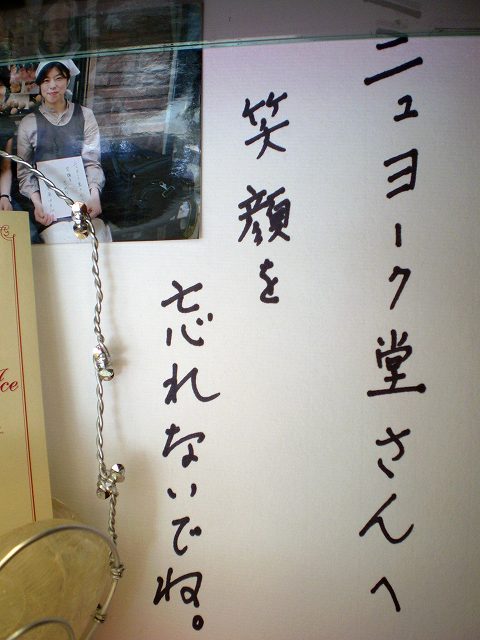 ニューヨーク堂さんへ
笑顔を
忘れないでね。
ce